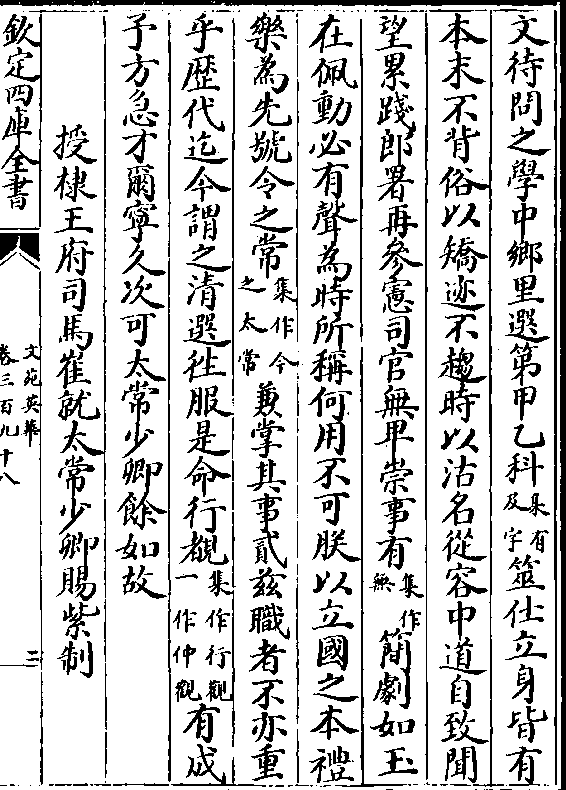 文待問之學中鄉里選第甲乙科集有及字筮仕立身皆有
本末不背俗以矯迹不趨時以沽名從容中道自致聞
望累踐郎署再參憲司官無卑崇事有集作無簡劇如玉
在佩動必有聲為時所稱何用不可朕以立國之本禮
樂為先號令之常集作令之太常兼掌其事貳兹職者不亦重
乎歴代迄今謂之清選徃服是命行觀集作行觀一作仲觀有成
予方急才爾寧久次可太常少卿餘如故
授棣王府司馬崔就太常少卿賜紫制
欽定四庫全書
文苑英華
卷三百九十八
三